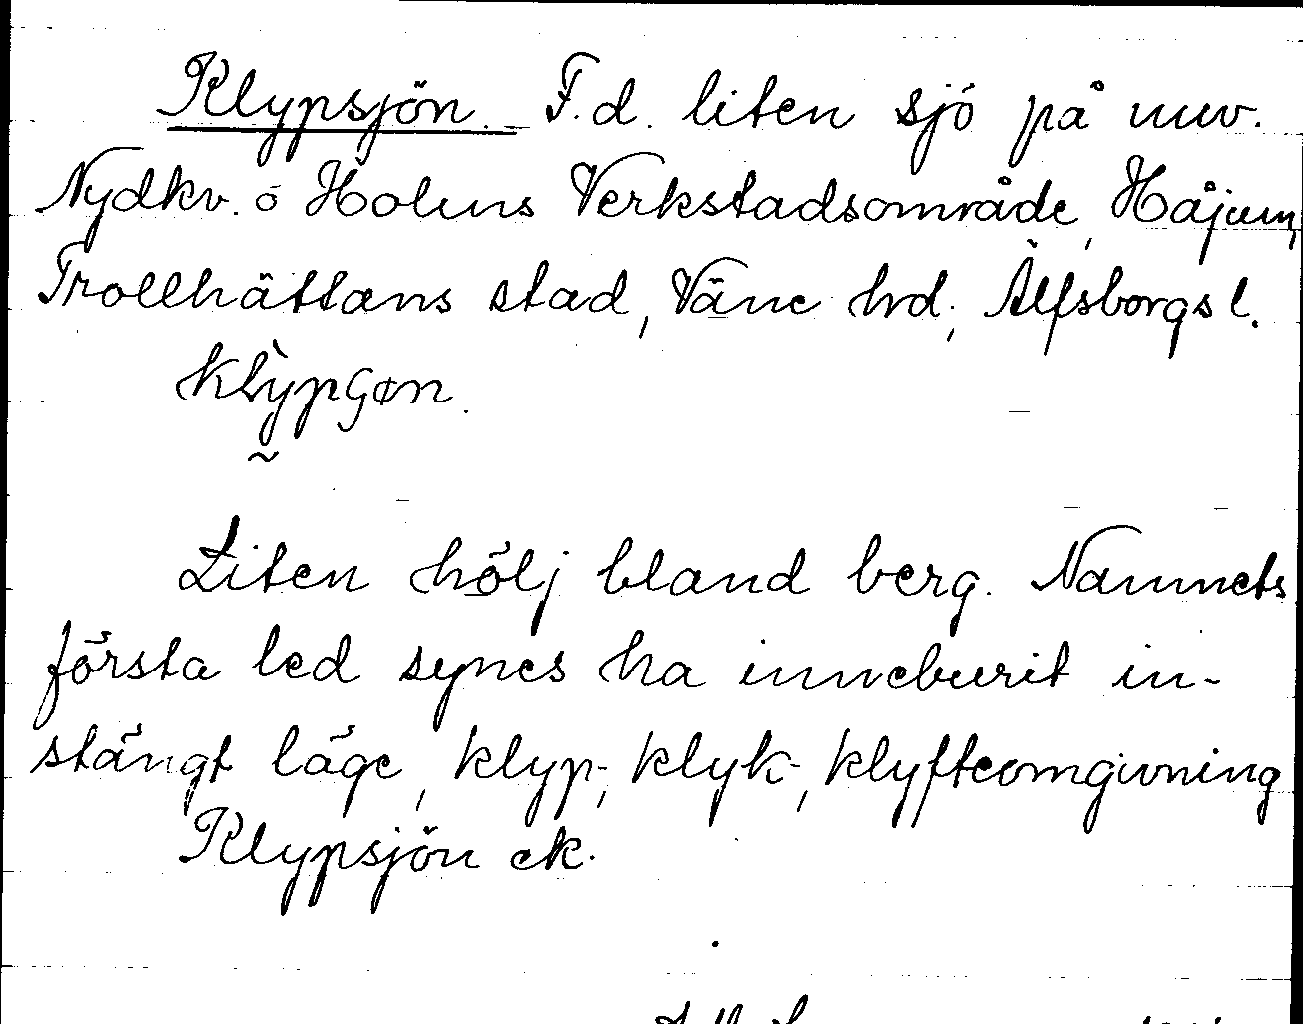 Klypsjön. F.d. liten sjö på nuv.
Nydkv. o Holms Verkstadsområde, Håjum,
Trollhättans stad, Väne hrd., Älfsborgs l.
klỳpɕøn.
Liten hölj bland berg. Namnets
första led synes ha inneburit in-
stängt läge, klyp-, klyk-, klyfteomgivning
Klypsjön ek.